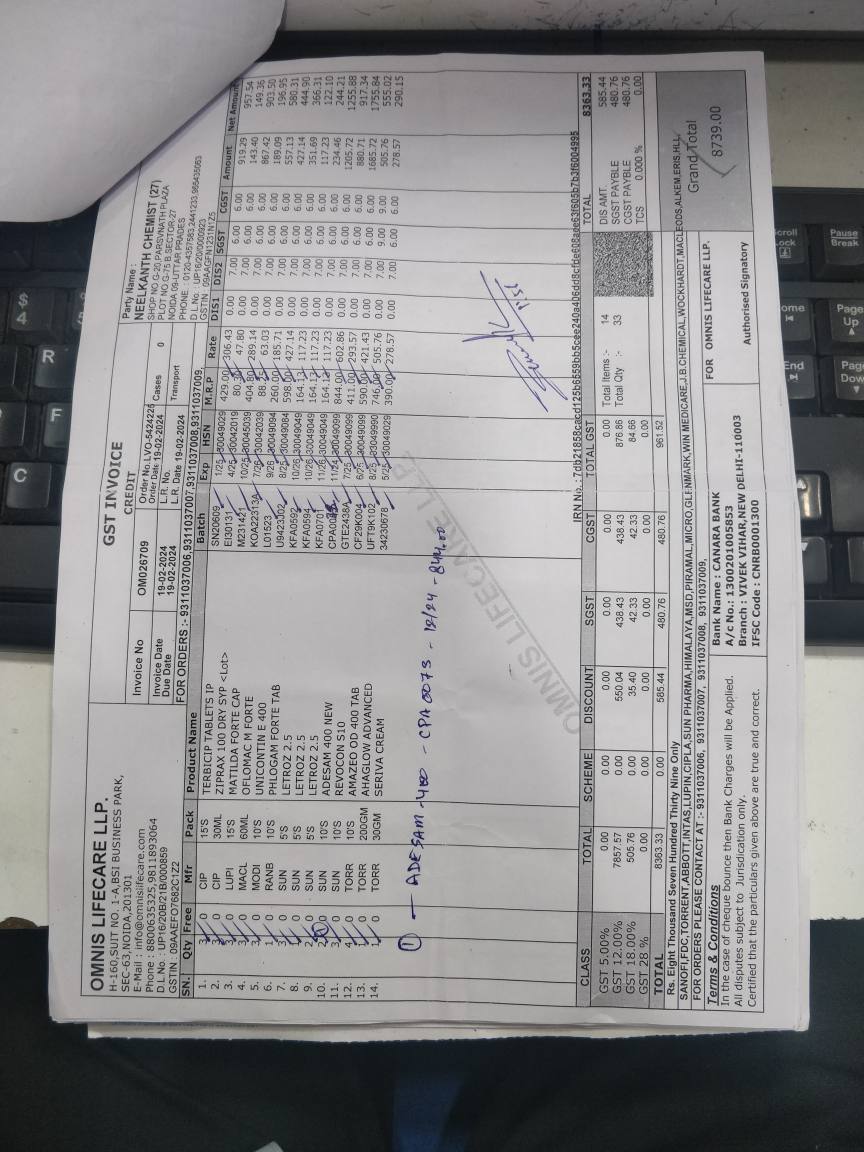 GST INVOICE
CREDIT
OMNIS LIFECARE LLP.
H-160,SUIT NO. 1-A,BSI BUSINESS PARK,
SEC-63,NOIDA,201301
E-Mail : info@omnislifecare.com
Phone : 8800635325,9811893064
D.L.No : UP16/20B/21B/000859
GSTIN : 09AAEFO7682C1Z2
Invoice No OM026709
Invoice Date 19-02-2024
Due Date 19-02-2024
Order No.LVO-5424225
Order Date 19-02-2024
L.R. No. Cases 0
L.R. Date 19-02-2024 Transport
FOR ORDERS :- 9311037006,9311037007,9311037008,9311037009
Party Name :
NEELKANTH CHEMIST (27)
SHOP NO G-20,PARSVNATH PLAZA
PLOT NO G-75 B,SECTOR-27
NOIDA 09-UTTAR PRADES
PHONE : 0120-4357583,2441233,965435063
D.L.No : UP16/20/0000923
GSTIN 09AAGFN1231N1Z5
SN. Qty Free Mfr Pack Product Name Batch Exp HSN M.R.P Rate DIS1 DIS2 SGST CGST Amount Net Amount
1. 3 0 CIP 15'S TERBICIP TABLETS IP SN20609 1/25 30049029 429.00 306.43 0.00 7.00 6.00 6.00 919.29 957.54
2. 3 0 CIP 30ML ZIPRAX 100 DRY SYP <Lot> EI30131 4/25 30042019 47.80 0.00 7.00 6.00 6.00 143.40 149.36
3. 3 0 LUPI 15'S MATILDA FORTE CAP M231421 10/25 30045039 404.80 289.14 0.00 7.00 6.00 6.00 867.42 903.50
4. 3 0 MACL 60ML OFLOMAC M FORTE KOA22313A 7/26 30042039 63.03 0.00 7.00 6.00 6.00 189.09 196.95
5. 3 0 MODI 10'S UNICONTIN E 400 L01523 9/26 30049094 260.00 185.71 0.00 7.00 6.00 6.00 557.13 580.31
6. 1 0 RANB 10'S PHLOGAM FORTE TAB U9423J02 8/25 30049084 598.00 427.14 0.00 7.00 6.00 6.00 427.14 444.90
7. 3 0 SUN 5'S LETROZ 2.5 KFA0592 10/26 30049049 164.13 117.23 0.00 7.00 6.00 6.00 351.69 366.31
8. 1 0 SUN 5'S LETROZ 2.5 KFA0594 10/26 30049049 164.13 117.23 0.00 7.00 6.00 6.00 117.23 122.10
9. 2 0 SUN 5'S LETROZ 2.5 KFA0701 11/26 30049049 164.12 117.23 0.00 7.00 6.00 6.00 234.46 244.21
10. 2 0 SUN 10'S ADESAM 400 NEW 11/24 30049099 844.00 602.86 0.00 7.00 6.00 6.00 1205.72 1255.88
11. 3 0 SUN 10'S REVOCON S10 GTE2438A 7/25 30049099 411.00 293.57 0.00 7.00 6.00 6.00 880.71 917.34
12. 4 0 TORR 10'S AMAZEO OD 400 TAB CF29K004 6/25 30049099 590.00 421.43 0.00 7.00 6.00 6.00 1685.72 1755.84
13. 1 0 TORR 200GM AHAGLOW ADVANCED UFT9K102 8/25 33049990 746.00 505.76 0.00 7.00 9.00 9.00 505.76 555.02
14. 1 0 TORR 30GM SERIVA CREAM 34230678 5/25 30049029 390.00 278.57 0.00 7.00 6.00 6.00 278.57 290.15
① — ADESAM-400 - CPA0073 - 12/24 - 844.00
OMNIS LIFECARE LLP
IRN No. : 7db21858cacd125b6559bb5cee240a406dd8cfde608aee63f605b7b3f6004995
CLASS TOTAL SCHEME DISCOUNT SGST CGST TOTAL GST
GST 5.00% 0.00 0.00 0.00 0.00 0.00 0.00
GST 12.00% 7857.57 0.00 550.04 438.43 438.43 876.86
GST 18.00% 505.76 0.00 35.40 42.33 42.33 84.66
GST 28 % 0.00 0.00 0.00 0.00 0.00 0.00
TOTAL 8363.33 0.00 585.44 480.76 480.76 961.52
Total Items :- 14
Total Qty :- 33
TOTAL 8363.33
DIS AMT. 585.44
SGST PAYBLE 480.76
CGST PAYBLE 480.76
TCS 0.000 % 0.00
Grand Total
8739.00
Rs. Eight Thousand Seven Hundred Thirty Nine Only
SANOFI,FDC,TORRENT,ABBOTT,INTAS,LUPIN,CIPLA,SUN PHARMA,HIMALAYA,MSD,PIRAMAL,MICRO,GLENMARK,WIN MEDICARE,J.B.CHEMICAL,WOCKHARDT,MACLEODS,ALKEM,ERIS,HLL,
FOR ORDERS PLEASE CONTACT AT :- 9311037006, 9311037007, 9311037008, 9311037009,
Terms & Conditions
In the case of cheque bounce then Bank Charges will be Applied.
All disputes subject to Jurisdication only.
Certified that the particulars given above are true and correct.
Bank Name : CANARA BANK
A/c No.: 13002010058​53
Branch : VIVEK VIHAR,NEW DELHI-110003
IFSC Code : CNRB0001300
FOR OMNIS LIFECARE LLP.
Authorised Signatory
Scroll Lock
Pause Break
Home
Page Up
End
Page Down
R
F
C